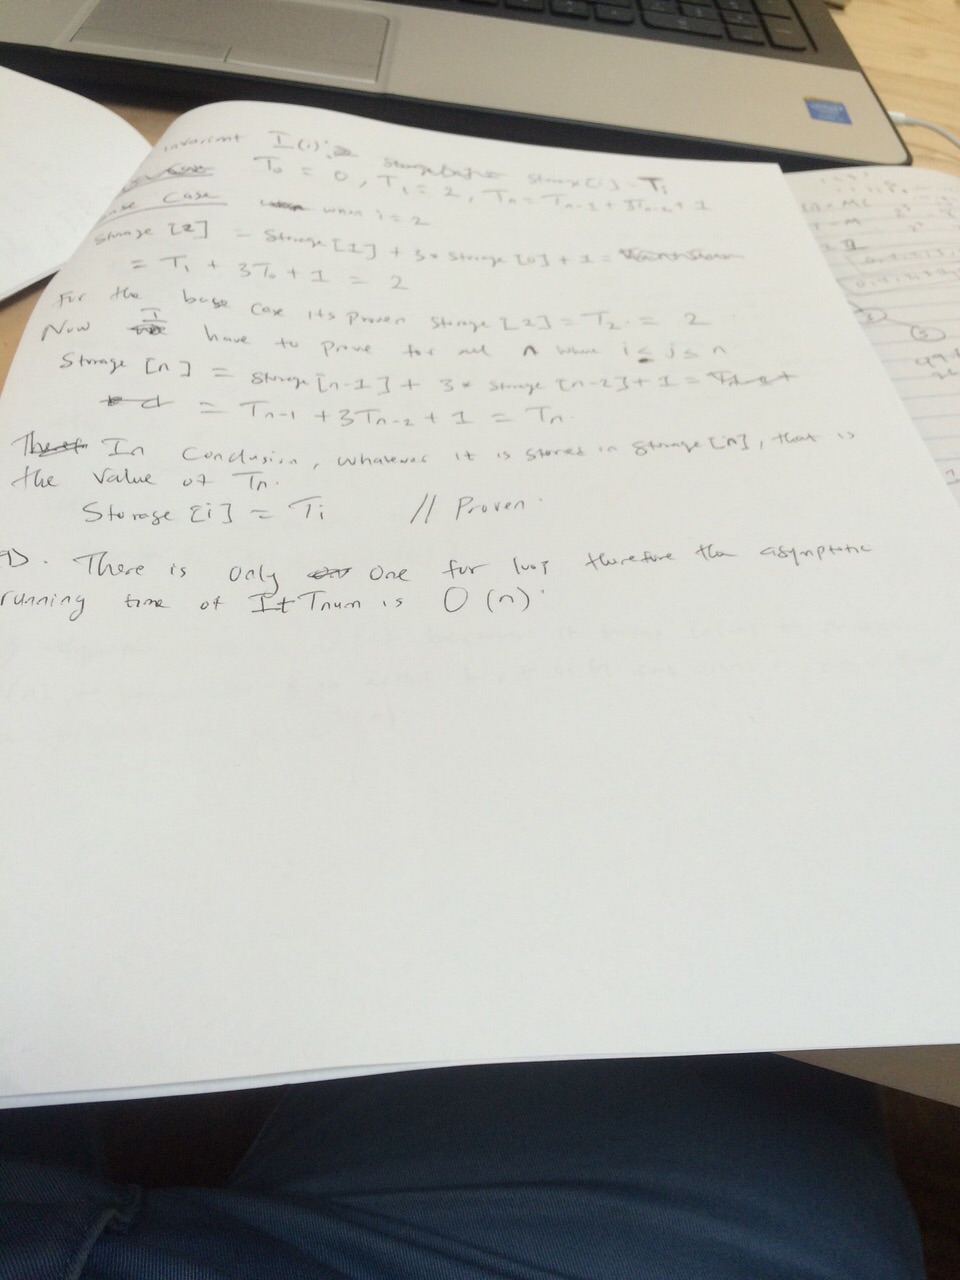 invariant I(i): Storage[i] = Ti
T0 = 0, T1 = 2, Tn = Tn-1 + 3Tn-2 + 1
Case when i = 2
Storage [2] = Storage [1] + 3 * Storage [0] + 1 =
= T1 + 3T0 + 1 = 2
For the base case its proven Storage [2] = T2 = 2
Now I have to prove for all n where i ≤ j ≤ n
Storage [n] = Storage [n-1] + 3 * Storage [n-2] + 1 =
= Tn-1 + 3Tn-2 + 1 = Tn.
In Conclusion, whatever it is stored in Storage [n], that is
the value of Tn.
Storage [i] = Ti // Proven.
There is only one for loop therefore the asymptotic
running time of ItTnum is O(n).